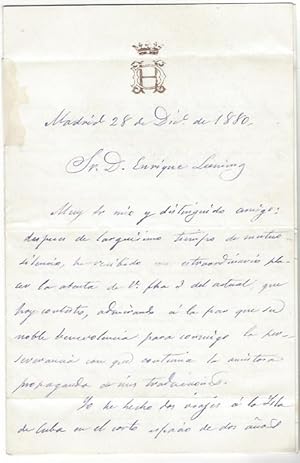 Madrid 28 de Dic. de 1880.
Sr. D. Enrique
Muy Sr mio y distinguido amigo:
despues de larguisimo tiempo de mutuo
silencio, he recibido con extraordinario pla-
cer la atenta de V. fha 3 del actual, que
hoy contesto, admirando á la par que su
noble benevolencia para conmigo la per-
severancia con que continúa la
propaganda de mis traducciones.
Yo he hecho dos viajes á la Isla
de Cuba en el corto espacio de dos años